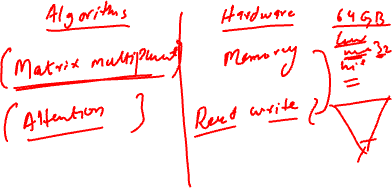 Algorithms
(Matrix multiplicat)
(Attention )
Hardware
Memory
Read write
64 GB
32